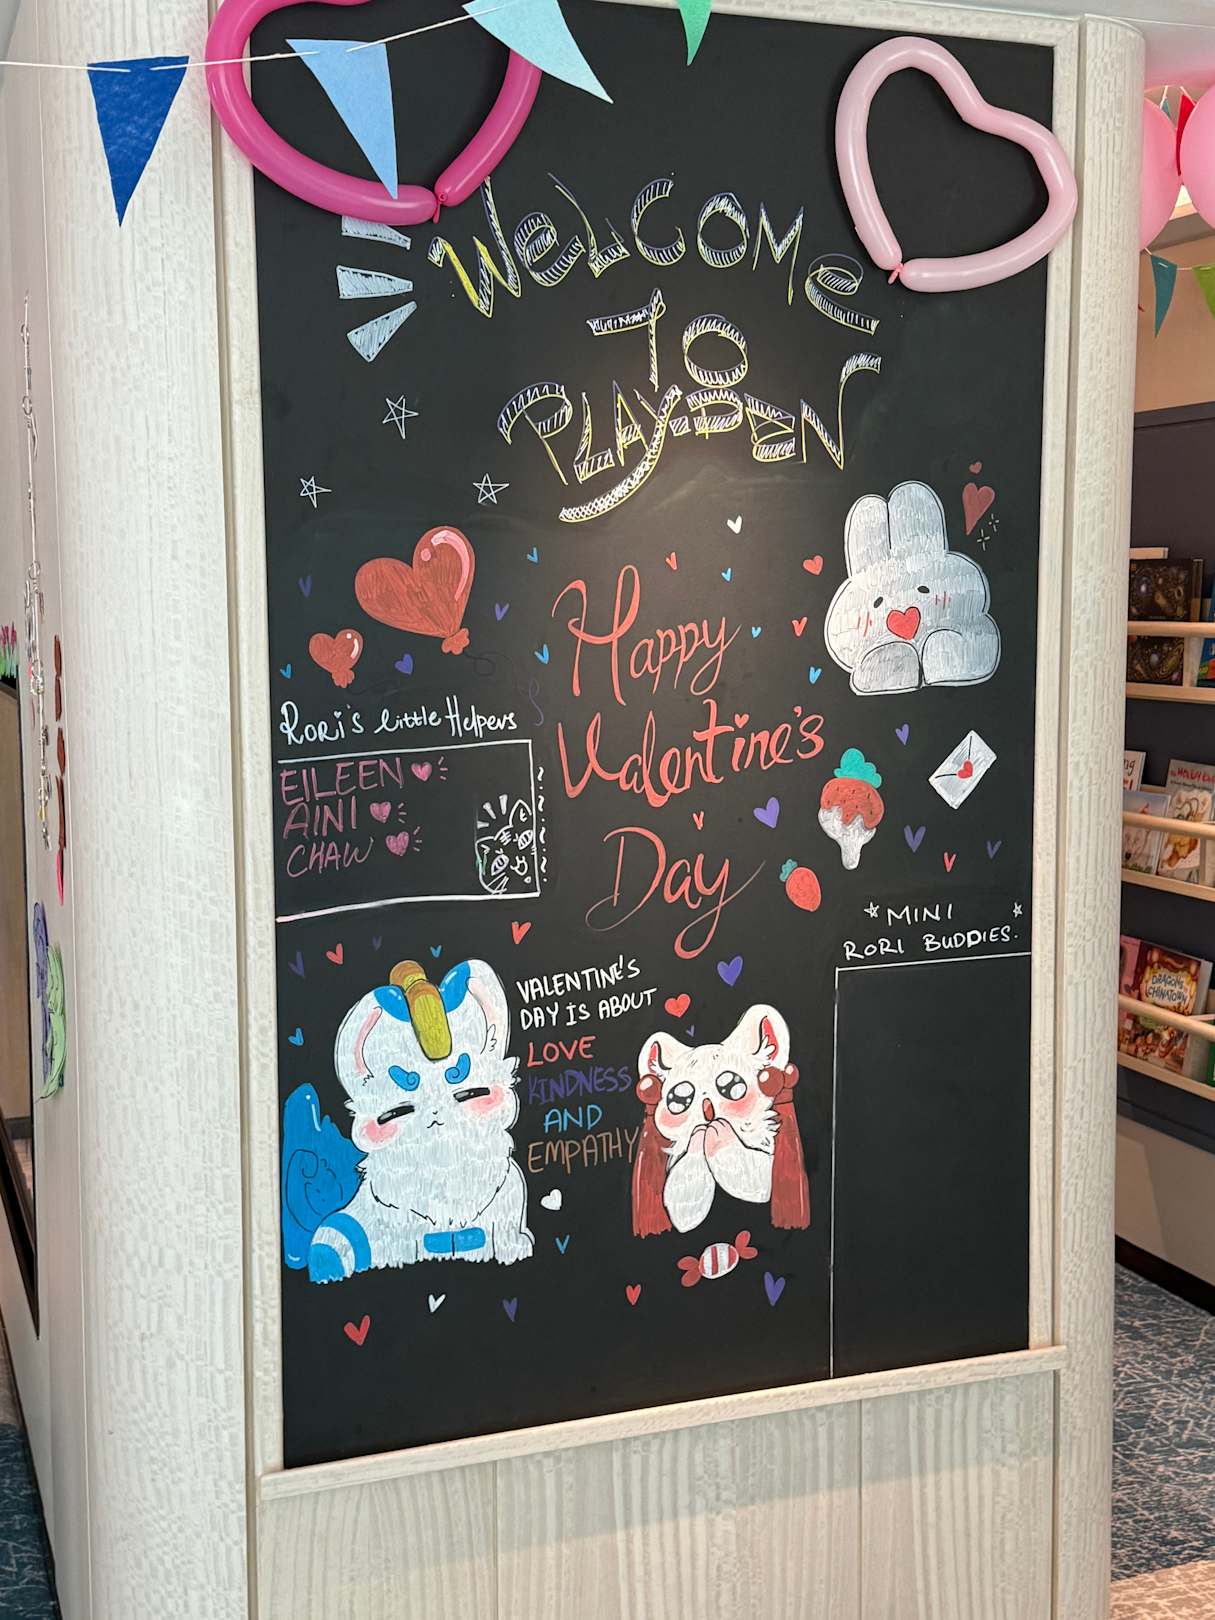 WELCOME
TO
PLAY-PEN
Happy
Valentine's
Day
Rori's little Helpers
EILEEN
AINI
CHAW
VALENTINE'S
DAY IS ABOUT
LOVE
KINDNESS
AND
EMPATHY
MINI
RORI BUDDIES.
DRAGONS
CHINATOWN